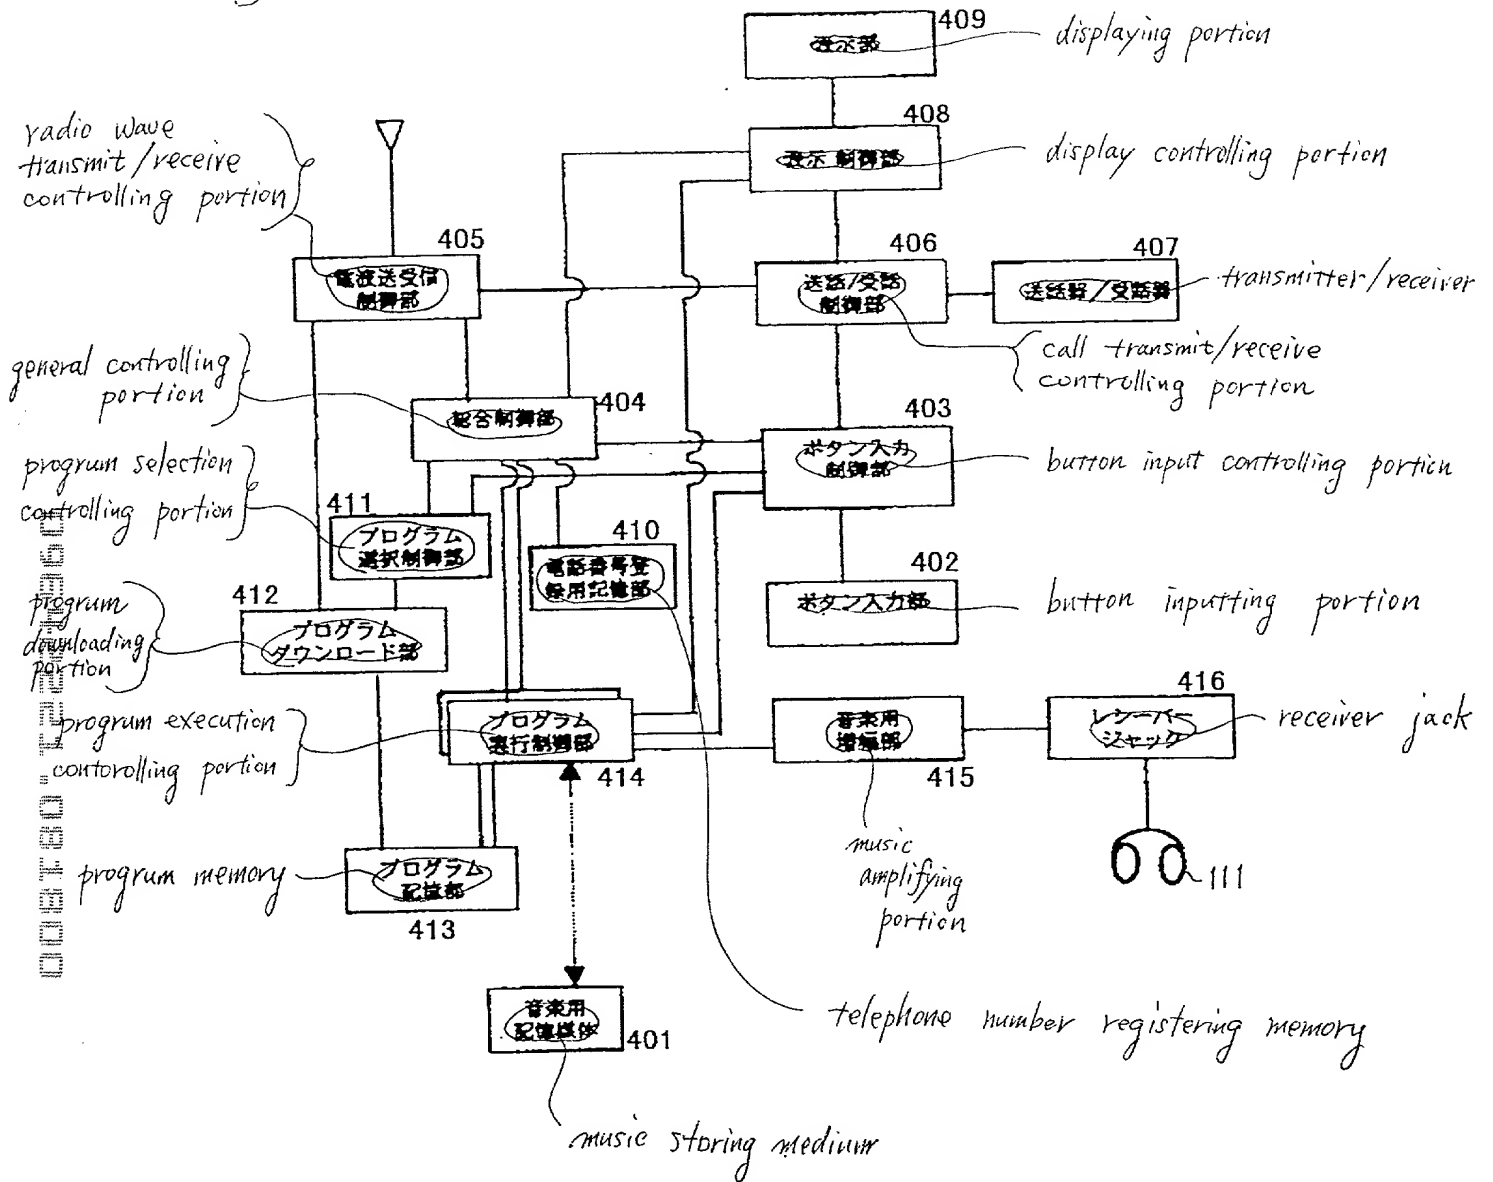 409
表示部
displaying portion
408
表示制御部
display controlling portion
radio wave
transmit/receive
controlling portion
405
電波送受信
制御部
406
送話/受話
制御部
407
送話器/受話器
transmitter/receiver
call transmit/receive
controlling portion
general controlling
portion
404
総合制御部
403
ボタン入力
制御部
button input controlling portion
progrum selection
controlling portion
411
プログラム
選択制御部
410
電話番号登
録用記憶部
402
ボタン入力部
button inputting portion
progrum
downloading
portion
412
プログラム
ダウンロード部
progrum execution
contorolling portion
プログラム
実行制御部
414
音楽用
増幅部
415
416
レシーバー
ジャック
receiver jack
music
amplifying
portion
111
progrum memory
プログラム
記憶部
413
音楽用
記憶媒体
401
telephone number registering memory
music storing medium